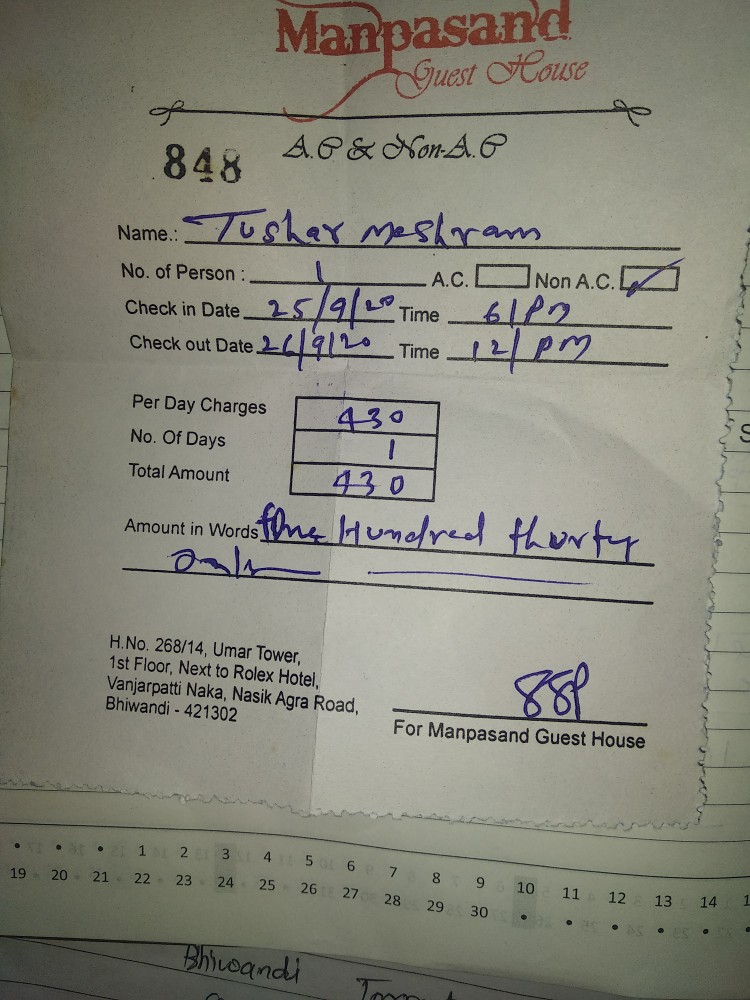 Manpasand
Guest House
A.C & Non-A.C
848
Name.: Tushar Meshram
No. of Person : 1 A.C. Non A.C. ✓
Check in Date 25/9/20 Time 6/PM
Check out Date 26/9/20 Time 12/PM
Per Day Charges 430
No. Of Days 1
Total Amount 430
Amount in Words Hundred thurty
only
H.No. 268/14, Umar Tower,
1st Floor, Next to Rolex Hotel,
Vanjarpatti Naka, Nasik Agra Road,
Bhiwandi - 421302
For Manpasand Guest House
• 17 • 16 • 1 2 3 4 5 6 7 8 9 10 11 12 13 14
19 20 21 22 23 24 25 26 27 28 29 30 • • • • •
Bhiwandi